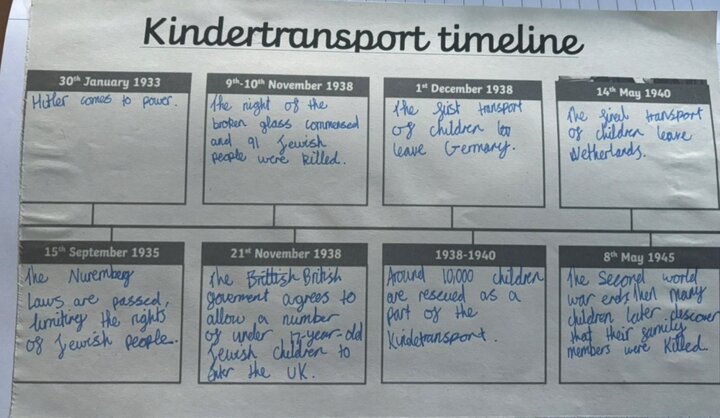 Kindertransport timeline
30th January 1933
Hitler comes to power.
9th-10th November 1938
The night of the
broken glass commensed
and 91 Jewish
people were killed.
1st December 1938
The first transport
of children
leave Germany.
14th May 1940
The final transport
of children leave
Netherlands.
15th September 1935
The Nuremberg
laws are passed,
limiting the rights
of Jewish people.
21st November 1938
The British
goverment agrees to
allow a number
of under 17-year-old
Jewish children to
enter the UK.
1938-1940
Around 10,000 children
are rescued as a
part of the
Kindetransport.
8th May 1945
The Second world
war ends then many
children later discover
that their family
members were killed.